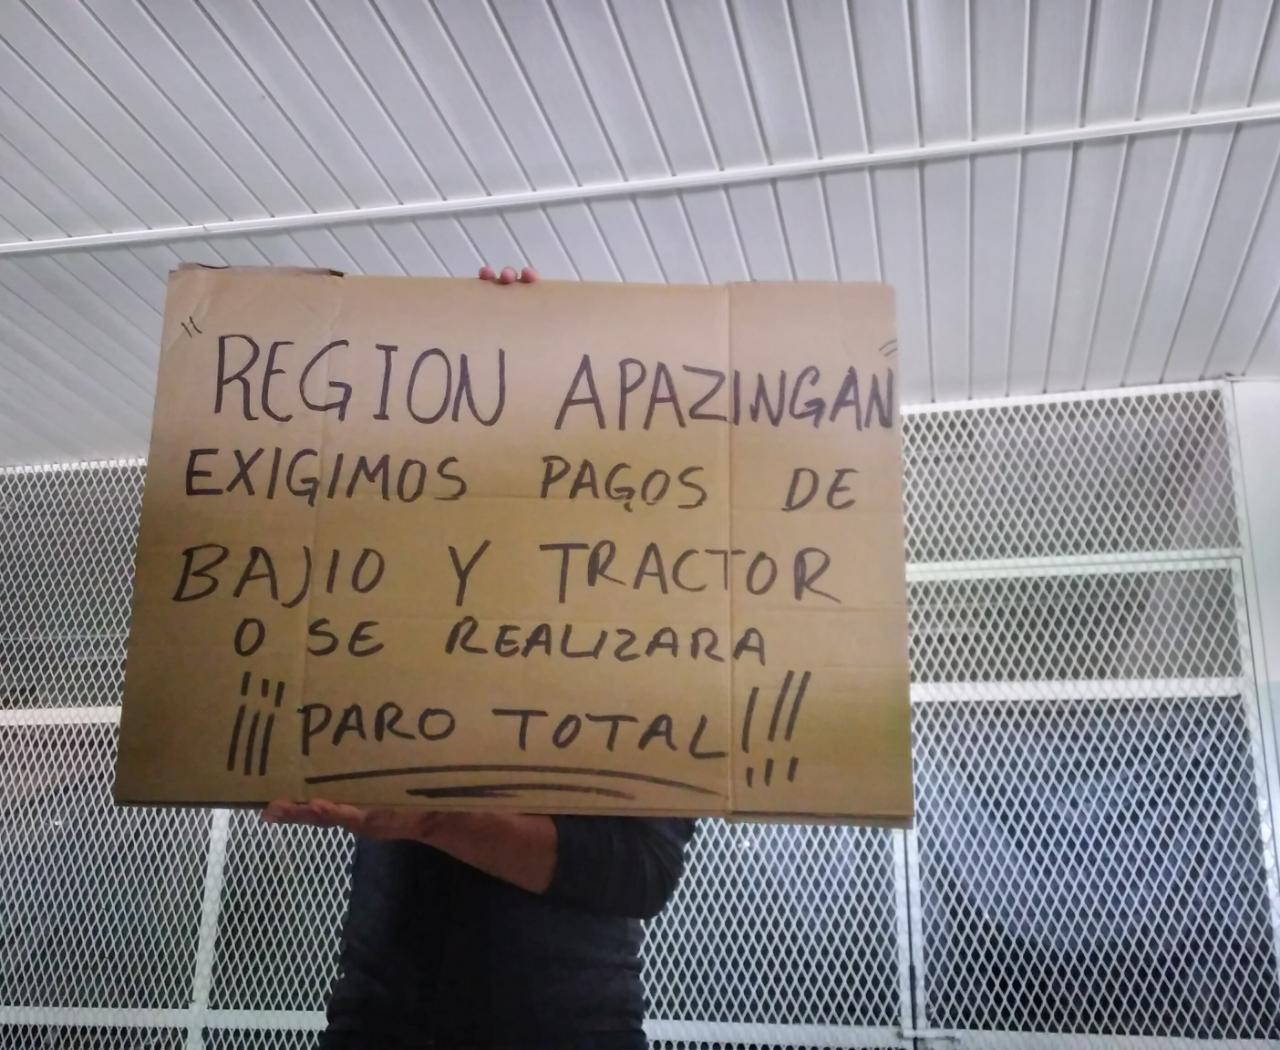 " REGION APAZINGAN "
EXIGIMOS PAGOS DE
BAJIO Y TRACTOR
O SE REALIZARA
¡¡¡PARO TOTAL!!!